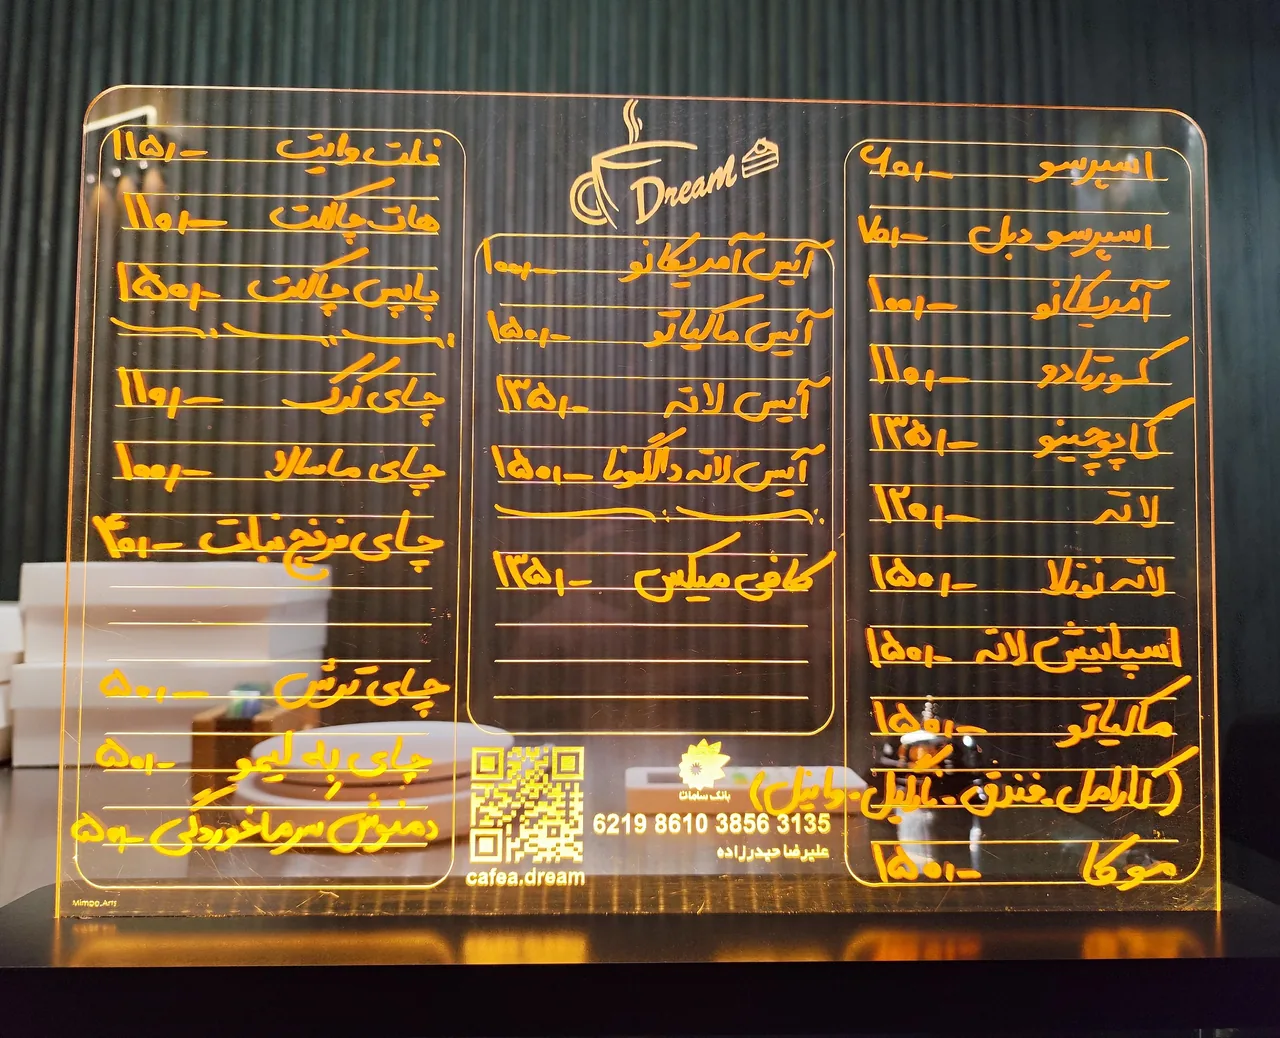 Dream
اسپرسو ۶۰/-
اسپرسو دبل ۷۰/-
آمریکانو ۱۰۰/-
کورتادو ۱۱۰/-
کاپوچینو ۱۳۵/-
لاته ۱۲۰/-
لاته نوتلا ۱۵۰/-
اسپانیش لاته ۱۵۰/-
ماکیاتو ۱۵۰/-
(کارامل - فندق - نارگیل - وانیل)
موکا ۱۵۰/-
آیس آمریکانو ۱۰۰/-
آیس ماکیاتو ۱۵۰/-
آیس لاته ۱۳۵/-
آیس لاته دالگونا ۱۵۰/-
کافی میکس ۱۳۵/-
فلت وایت ۱۱۵/-
هات چاکلت ۱۱۰/-
پاپس چاکلت ۱۵۰/-
چای کرک ۱۱۰/-
چای ماسالا ۱۰۰/-
چای فرنچ نبات ۴۰/-
چای ترش ۵۰/-
چای به لیمو ۵۰/-
دمنوش سرماخوردگی ۵۰/-
بانک سامان
6219 8610 3856 3135
علیرضا حیدرزاده
cafea.dream
Mimoo_Arts